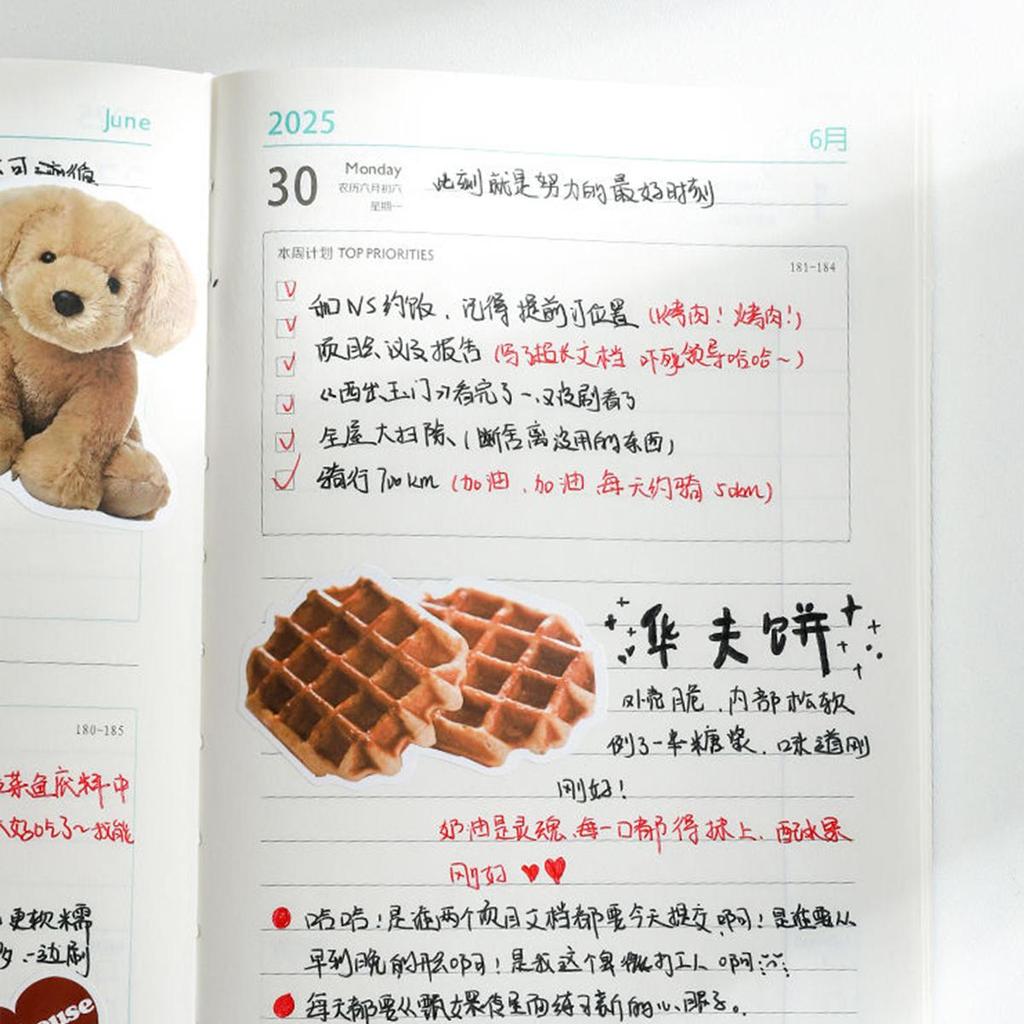 June
180-185
菜鱼底料中
好吃了~我能
更软糯
一边刷
use
2025
6月
30
Monday
农历六月初六
星期一
此刻就是努力的最好时刻
本周计划 TOP PRIORITIES
181-184
和NS约饭、记得提前订位置 (烤肉!烤肉!)
项目会议及报告 (写了超长文档 吓死领导哈哈~)
《西出玉门》看完了~又没剧看了
全屋大扫除、(断舍离没用的东西)
骑行700km (加油、加油 每天约骑 50km)
华夫饼
外壳脆、内部松软
倒了一半糖浆、味道刚
刚好!
奶油是灵魂、每一口都得抹上、配水果
刚好
啃啃!是谁两个项目文档都要今天提交啊!是谁要从
早到晚的形啊!是我这个卑微打工人啊
每天都要从